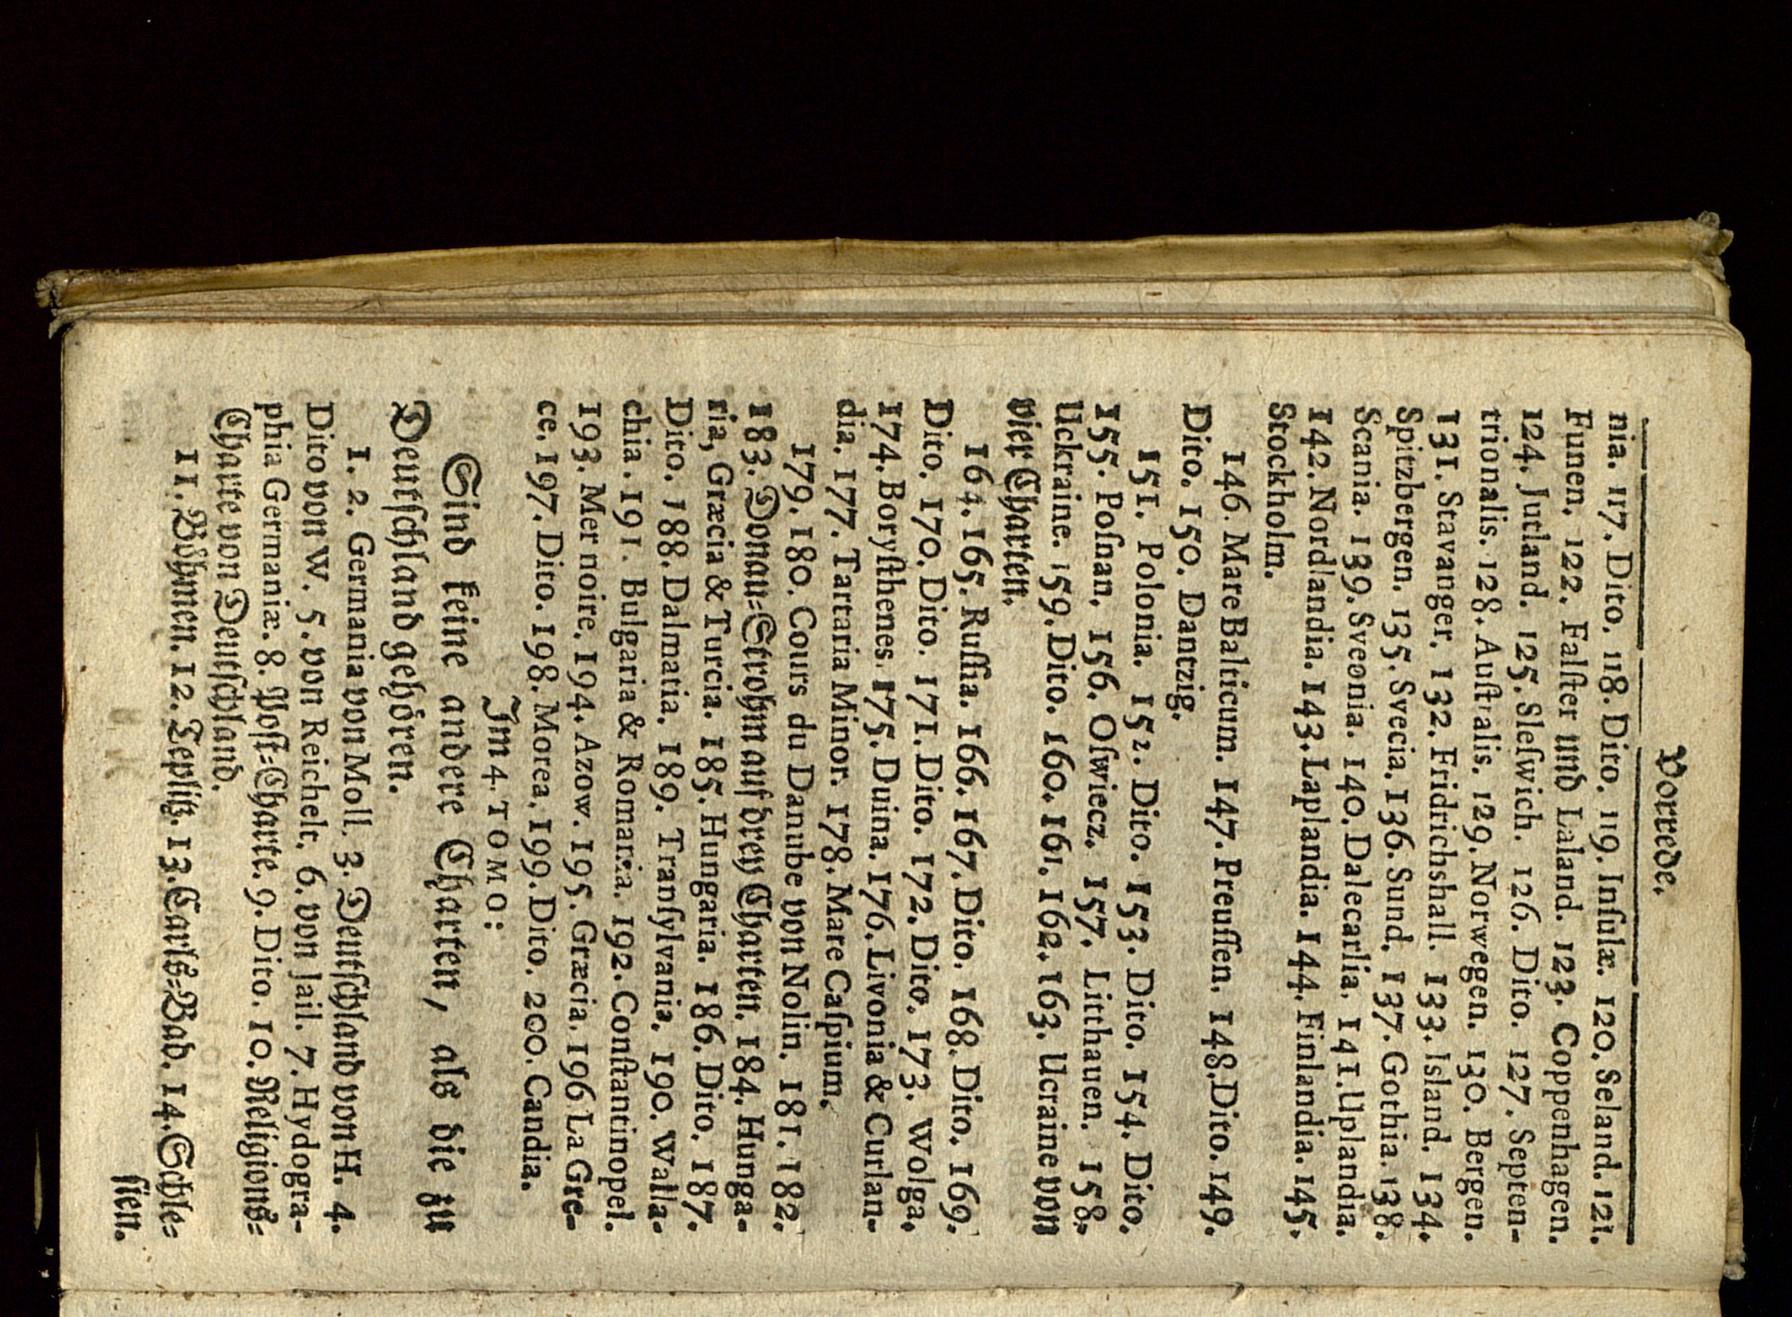 Vorrede.
nia. 117. Dito. 118. Dito. 119. Inſulæ. 120. Seland. 121.
Funen. 122. Falſter und Laland. 123. Coppenhagen.
124. Jutland. 125. Sleſwich. 126. Dito. 127. Septen-
trionalis. 128. Auſtralis. 129. Norwegen. 130. Bergen.
131. Stavanger. 132. Fridrichshall. 133. Island. 134.
Spitzbergen. 135. Svecia. 136. Sund. 137. Gothia. 138.
Scania. 139. Sveonia. 140. Dalecarlia. 141. Uplandia.
142. Nordlandia. 143. Laplandia. 144. Finlandia. 145.
Stockholm.
146. Mare Balticum. 147. Preuſſen. 148. Dito. 149.
Dito. 150. Dantzig.
151. Polonia. 152. Dito. 153. Dito. 154. Dito.
155. Poſnan. 156. Oſwiecz. 157. Litthauen. 158.
Uckraine. 159. Dito. 160. 161. 162. 163. Ucraine von
vier Charten.
164. 165. Ruſſia. 166. 167. Dito. 168. Dito. 169.
Dito. 170. Dito. 171. Dito. 172. Dito. 173. Wolga.
174. Boryſthenes. 175. Duina. 176. Livonia & Curlan-
dia. 177. Tartaria Minor. 178. Mare Caſpium.
179. 180. Cours du Danube von Nolin. 181. 182.
183. Donau-Strohm auf drey Charten. 184. Hunga-
ria, Græcia & Turcia. 185. Hungaria. 186. Dito. 187.
Dito. 188. Dalmatia. 189. Tranſylvania. 190. Walla-
chia. 191. Bulgaria & Romania. 192. Conſtantinopel.
193. Mer noire. 194. Azow. 195. Græcia. 196 La Gre-
ce. 197. Dito. 198. Morea. 199. Dito. 200. Candia.
Im 4. TOMO:
Sind keine andere Charten, als die zu
Deutſchland gehören.
1. 2. Germania von Moll. 3. Deutſchland von H. 4.
Dito von W. 5. von Reichelt. 6. von Jail. 7. Hydogra-
phia Germaniæ. 8. Poſt-Charte. 9. Dito. 10. Religions-
Charte von Deutſchland.
11. Böhmen. 12. Teplitz. 13. Carls-Bad. 14. Schle-
ſien.